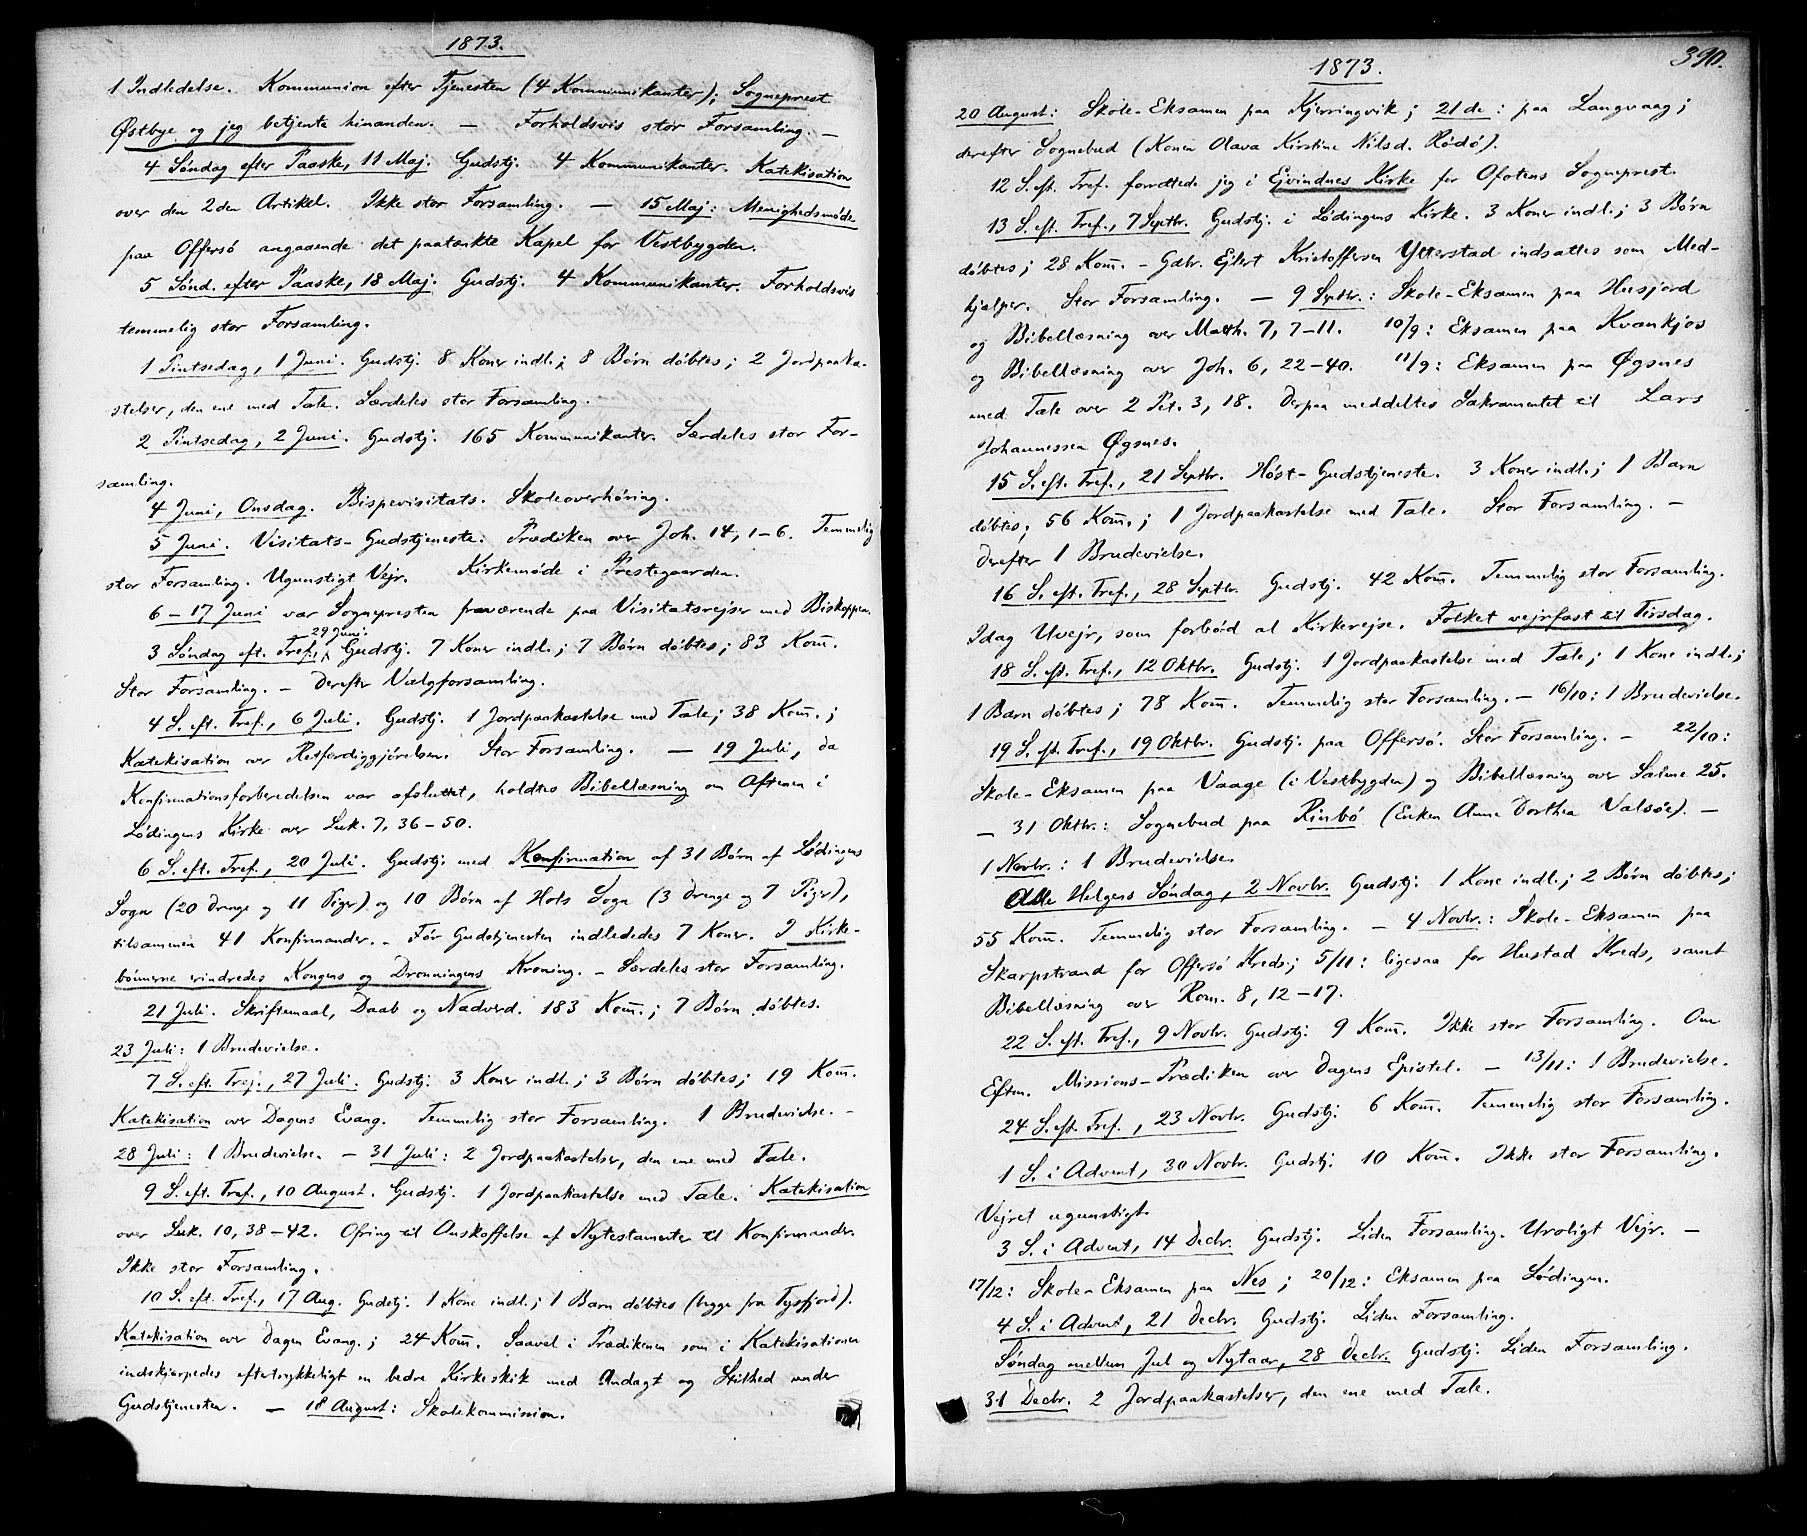 1873.
1 Indledelse. Kommunion efter Tjenesten (4 Kommunikanter); Sogneprest
Østbye og jeg betjente hinanden. — Forholdsvis stor Forsamling. —
4 Søndag efter Paaske, 11 Maj. Gudstj. 4 Kommunikanter. Katekisation
over den 2den Artikel. Ikke stor Forsamling. — 15 Maj: Menighedsmøde
paa Offersø angaaende det paatænkte Kapel for Vestbygden.
5 Sønd. efter Paaske, 18 Maj. Gudstj. 4 Kommunikanter. Forholdsvis
temmelig stor Forsamling.
1 Pintsedag, 1 Juni. Gudstj. 8 Koner indl.; 8 Børn døbtes; 2 Jordpaaka-
stelser, den ene med Tale. Særdeles stor Forsamling.
2 Pintsedag, 2 Juni. Gudstj. 165 Kommunikanter. Særdeles stor For-
samling.
4 Juni, Onsdag. Bispevisitats. Skoleoverhøring.
5 Juni. Visitats-Gudstjeneste. Prædiken over Joh. 14, 1-6. Temmelig
stor Forsamling. Ugunstigt Vejr. Kirkemøde i Prestegaarden.
6-17 Juni var Sognepresten fraværende paa Visitatsrejser med Biskoppen.
3 Søndag eft. Tref., 29 Juni. Gudstj. 7 Koner indl.; 7 Børn døbtes; 83 Kom̄.
Stor Forsamling. — Derefter Valgforsamling.
4 S. eft. Tref., 6 Juli. Gudstj. 1 Jordpaakastelse med Tale; 38 Kom̄.;
Katekisation over Retfærdiggjørelsen. Stor Forsamling. — 19 Juli, da
Konfirmationsforberedelsen var afsluttet, holdtes Bibellæsning om Aftenen i
Lødingens Kirke over Luk. 7, 36-50.
6 S. eft. Tref., 20 Juli. Gudstj. med Konfirmation af 31 Børn af Lødingens
Sogn (20 Drenge og 11 Piger) og 10 Børn af Hols Sogn (3 Drenge og 7 Piger),
tilsammen 41 Konfirmander. — Før Gudstjenesten indlededes 7 Koner. I Kirke-
bønnerne erindredes Kongens og Dronningens Kroning. — Særdeles stor Forsamling.
21 Juli. Skriftemaal, Daab og Nadverd. 183 Kom̄.; 7 Børn døbtes.
23 Juli: 1 Brudevielse.
7 S. eft. Tref., 27 Juli. Gudstj. 3 Koner indl.; 3 Børn døbtes; 19 Kom̄.
Katekisation over Dagens Evang. Temmelig stor Forsamling. 1 Brudevielse. —
28 Juli: 1 Brudevielse. — 31 Juli: 2 Jordpaakastelser, den ene med Tale.
9 S. eft. Tref., 10 August. Gudstj. 1 Jordpaakastelse med Tale. Katekisation
over Luk. 10, 38-42. Ofring til Anskaffelse af Nytestamenter til Konfirmander.
Ikke stor Forsamling.
10 S. eft. Tref., 17 Aug. Gudstj. 1 Kone indl.; 1 Barn døbtes (begge fra Tysfjord).
Katekisation over Dagen Evang.; 24 Kom̄. Saavel i Prædikenen som i Katekisationen
indskjærpedes eftertrykkeligt en bedre Kirkeskik med Andagt og Stilhed under
Gudstjenesten. — 18 August: Skolekommission.
390.
1873.
20 August: Skole-Eksamen paa Kjerringvik; 21de: paa Langvaag;
derefter Sognebud (Konen Olava Kirstine Nilsd. Rødø).
12 S. eft. Tref. forrettede jeg i Evindnes Kirke for Ofotens Sogneprest.
13 S. eft. Tref., 7 Septbr. Gudstj. i Lødingens Kirke. 3 Koner indl.; 3 Børn
døbtes; 28 Kom̄. — Gdbr. Ejlert Kristoffersen Ytterstad indsattes som Med-
hjælper. Stor Forsamling. — 9 Septbr.: Skole-Eksamen paa Husjord
og Bibellæsning over Matth. 7, 7-11. 10/9: Eksamen paa Kvankjos
og Bibellæsning over Joh. 6, 22-40. 11/9: Eksamen paa Øgsnes
med Tale over 2 Pet. 3, 18. Derpaa meddeltes Sakramentet til Lars
Johannessen Øgsnes.
15 S. eft. Tref., 21 Septbr. Høst-Gudstjeneste. 3 Koner indl.; 1 Barn
døbtes; 56 Kom̄.; 1 Jordpaakastelse med Tale. Stor Forsamling. —
Derefter 1 Brudevielse.
16 S. eft. Tref., 28 Septbr. Gudstj. 42 Kom̄. Temmelig stor Forsamling.
Idag Uvejr, som forbød al Kirkerejse. Folket vejrfast til Tirsdag.
18 S. eft. Tref., 12 Oktbr. Gudstj. 1 Jordpaakastelse med Tale; 1 Kone indl.;
1 Barn døbtes; 78 Kom̄. Temmelig stor Forsamling. — 16/10: 1 Brudevielse.
19 S. eft. Tref., 19 Oktbr. Gudstj. paa Offersø. Stor Forsamling. — 22/10:
Skole-Eksamen paa Vaage (i Vestbygden) og Bibellæsning over Salme 25.
— 31 Oktbr.: Sognebud paa Rinbø (Enken Anne Dorthea Valsøe). —
1 Novbr.: 1 Brudevielse.
Alle Helgens Søndag, 2 Novbr. Gudstj. 1 Kone indl.; 2 Børn døbtes;
55 Kom̄. Temmelig stor Forsamling. — 4 Novbr.: Skole-Eksamen paa
Skarpstrand for Offersø Kreds; 5/11: ligesaa for Hustad Kreds, samt
Bibellæsning over Rom. 8, 12-17.
22 S. eft. Tref., 9 Novbr. Gudstj. 9 Kom̄. Ikke stor Forsamling. Om
Eften. Missions-Prædiken over Dagens Epistel. — 13/11: 1 Brudevielse.
24 S. eft. Tref., 23 Novbr. Gudstj. 6 Kom̄. Temmelig stor Forsamling.
1 S. i Advent, 30 Novbr. Gudstj. 10 Kom̄. Ikke stor Forsamling.
Vejret ugunstigt.
3 S. i Advent, 14 Decbr. Gudstj. Liden Forsamling. Uroligt Vejr. —
17/12: Skole-Eksamen paa Nes; 20/12: Eksamen paa Lødingen.
4 S. i Advent, 21 Decbr. Gudstj. Liden Forsamling.
Søndag mellem Jul og Nytaar, 28 Decbr. Gudstj. Liden Forsamling.
31 Decbr. 2 Jordpaakastelser, den ene med Tale.